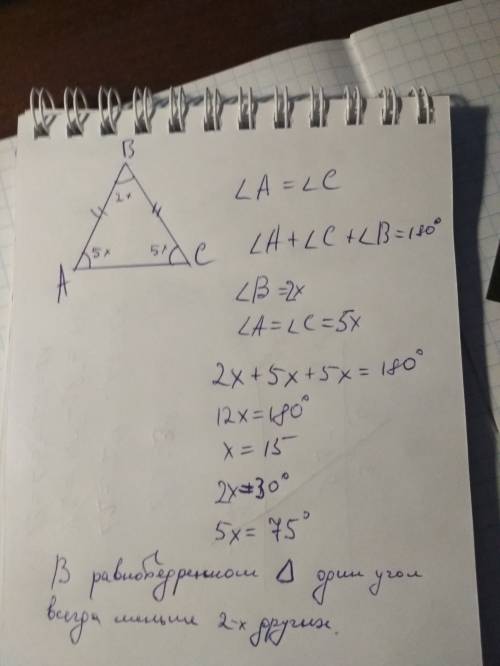 B
2x
5x
5x
A
C
∠A = ∠C
∠A + ∠C + ∠B = 180°
∠B = 2x
∠A = ∠C = 5x
2x + 5x + 5x = 180°
12x = 180°
x = 15
2x = 30°
5x = 75°
В равнобедренном Δ один угол
всегда меньше 2-х других.